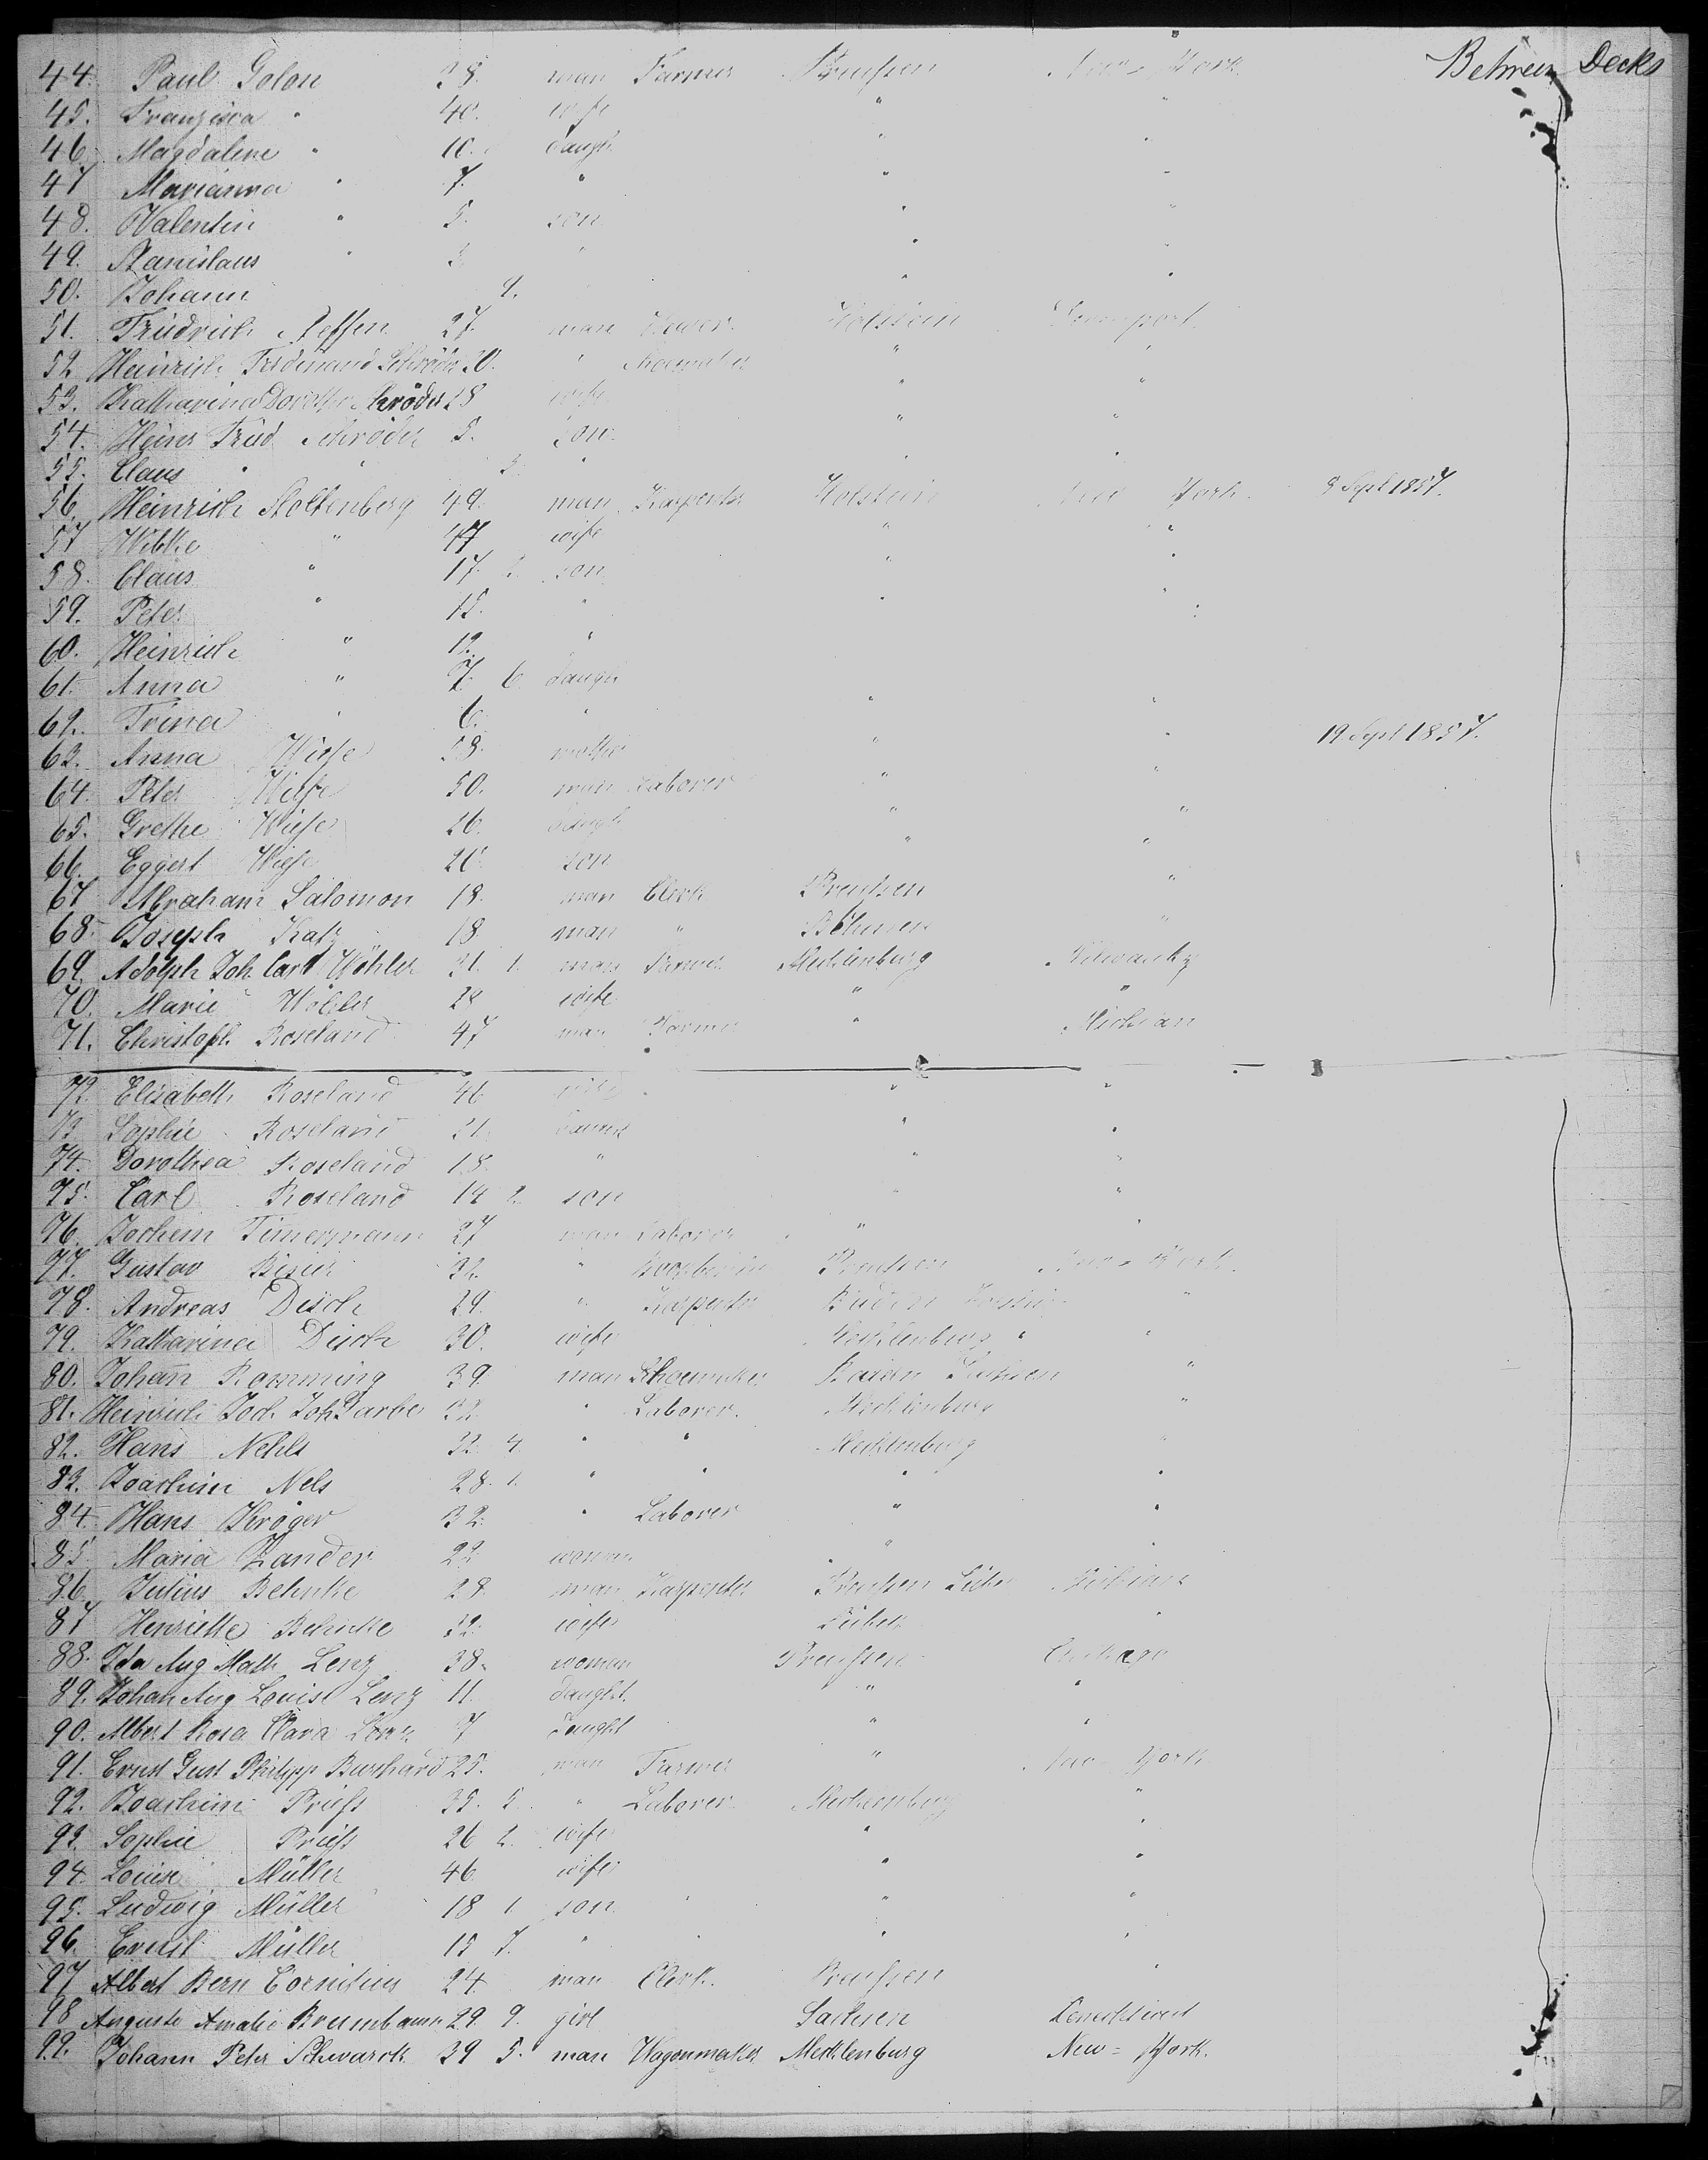 Between Decks
44. Paul Golon 38. man Farmer Preußen New-York
45. Franzisca " 40. wife " "
46. Magdalene " 10. daugh " "
47 Marianna " 7. " " "
48. Valentin " 5. son " "
49. Stanislaus " 3. " " "
50. Johann 9. " "
51. Friedrich Steffen 27. man Holstein Davenport
52 Heinrich Ferdinand Schröder 30. " Shoemaker " "
53. Katharina Doroth Schröder 28 wife " "
54. Heinr Fried Schröder 5. son " "
55. Claus " " 3. " " "
56. Heinrich Stoltenberg 49. man Karpenter Holstein New York. 8 Sept 1857.
57 Wibke " 47 wife " "
58. Claus " 17. 2. son " "
59. Peter " 15. " " "
60. Heinrich " 12. "
61. Anna " 7. 6 daugh
62. Trina " 6. " " "
63. Anna Wiese 58. mother " " 19 Sept 1857.
64. Peter Wiese 50. man Laborer " "
65. Grethe Wiese 26. daugh " "
66. Eggert Wiese 20. son " "
67 Abraham Salomon 18. man Clerk Preußen "
68. Joseph Katz 18 man " Böhmen "
69. Adolph Joh. Carl Wöhler 31. 1. man Farmer Mecklenburg Milwauky
70. Marie Wöhler 28 wife " "
71. Christoph Roseland 47 man Farmer " Michian
72. Elisabeth Roseland 46 wife " "
73 Sophie Roseland 21. " "
74. Dorothea Roseland 18. " " "
75. Carl Roseland 14 2. son " "
76. Jochem Timermann 27 man Laborer " "
77. Gustav 32. " Preußen New-York.
78. Andreas Disch 29. " Karpenter "
79. Katharina Disch 30. wife Mecklenburg " "
80. Johann Romming 39. man Shoemaker "
81. Heinrich Joch. Joh. Darbe 32 " Laborer. Mecklenburg "
82. Hans Nehls 32. 4. " " Mecklenburg "
83. Joachim Nels 28. 1. " " " "
84. Hans Kröger 32. " Laborer " "
85. Maria Zander 22 woman " "
86. Julius Behnke 28. man Karpenter Preußen
87 Henriette Behnke 32. wife Lübeck "
88. Ida Aug Math Lenz 38. woman Preußen Chikago
89. Johan Aug Louise Lenz 11. daught. " "
90. Albert Rosa Clara Lenz 7 daught " "
91. Ernst Gust Philipp Burchard 25. man Farmer " New-York
92. Joachim Prieß 35. 5. " Laborer Mecklenburg "
93. Sophie Prieß 26 2. wife " "
94. Louise Müller 46 wife " "
95. Ludwig Müller 18 1 son " "
96. Ernst Müller 15 7. " " "
97 Albert Bern Cornelius 24 man Clerk. Preußen "
98 Auguste Amalie Brumbaum 22. 9. girl Sachsen
99. Johann Peter Schwarck 39 5. man Wagonmaker Mecklenburg New-York.